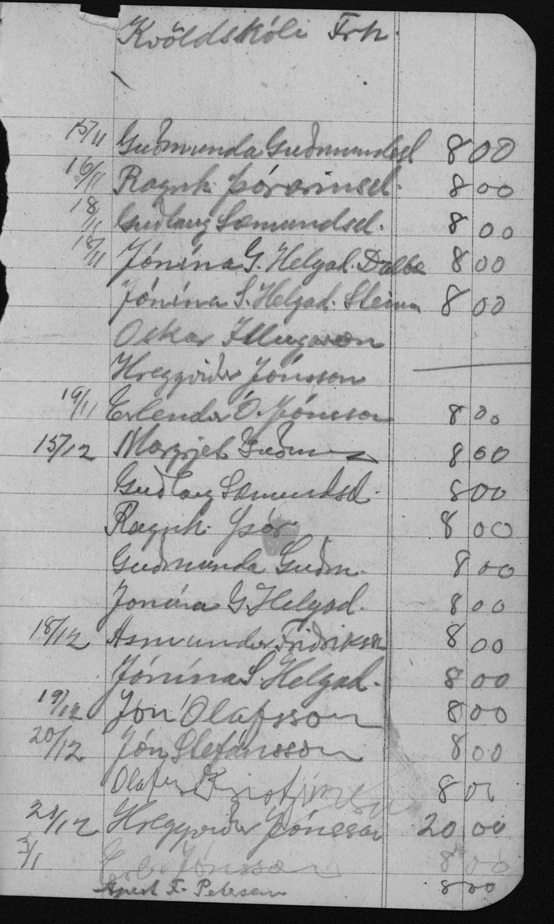 Kvöldskóli Frh.
15/11 Guðmunda Guðmundsd 8 00
16/11 Ragnh. Þórarinsd. 8 00
18/11 Guðlaug Sæmundsd. 8 00
18/11 Jónína G. Helgad. Dalbæ 8 00
Jónína S. Helgad. Steinu 8 00
Oskar Illugason
Hreggviður Jónsson
19/11 Erlendur Ó. Jónsson 8 00
15/12 Margrjet Guðm 8 00
Guðlaug Sæmundsd. 8 00
Ragnh. Þór. 8 00
Guðmunda Guðm. 8 00
Jonína G. Helgad. 8 00
18/12 Asmundur Friðrikss 8 00
Jónína S. Helgad. 8 00
19/12 Jón Olafsson 8 00
20/12 Jón Stefánsson 8 00
Olafur 8 00
Hreggviður Jónsson 20 00
Jónsson 8 00
F. Petersen 8 00